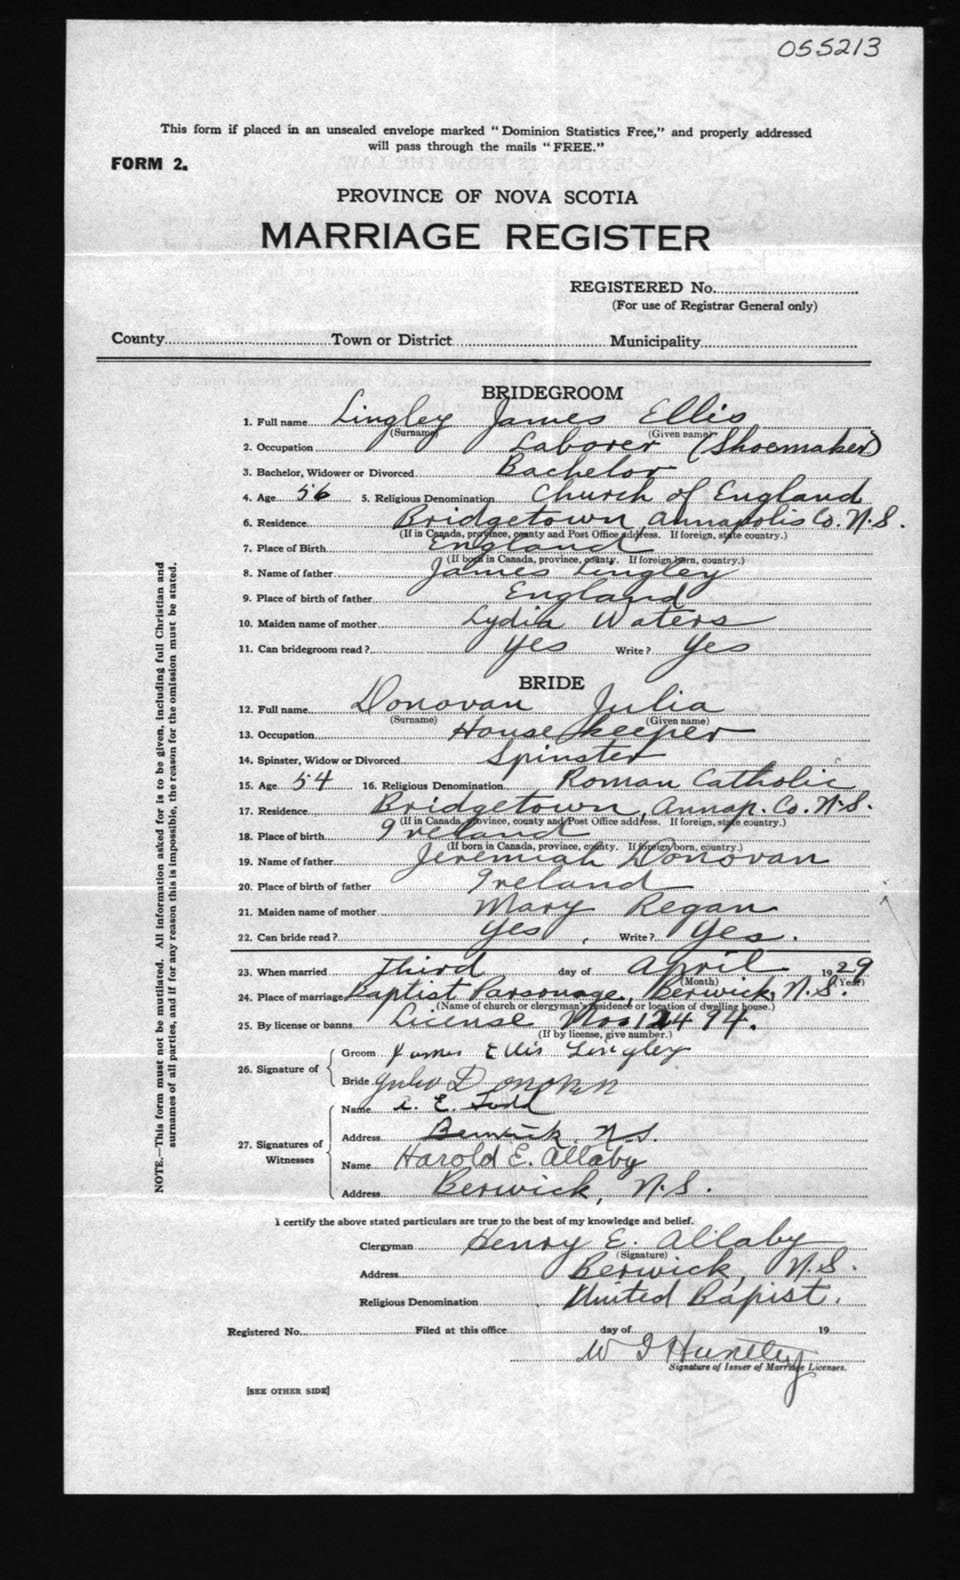 055213
This form if placed in an unsealed envelope marked "Dominion Statistics Free," and properly addressed
will pass through the mails "FREE."
FORM 2.
PROVINCE OF NOVA SCOTIA
MARRIAGE REGISTER
REGISTERED No.
(For use of Registrar General only)
County Town or District Municipality
BRIDEGROOM
1. Full name Lingley James Ellis
(Surname) (Given name)
2. Occupation Laborer (Shoemaker)
3. Bachelor, Widower or Divorced Bachelor
4. Age 56 5. Religious Denomination Church of England
6. Residence Bridgetown, Annapolis Co. N.S.
(If in Canada, province, county and Post Office address. If foreign, state country.)
7. Place of Birth England
(If born in Canada, province, county. If foreign born, country.)
8. Name of father James Lingley
9. Place of birth of father England
10. Maiden name of mother Lydia Waters
11. Can bridegroom read? Yes Write? Yes
BRIDE
12. Full name Donovan Julia
(Surname) (Given name)
13. Occupation House keeper
14. Spinster, Widow or Divorced Spinster
15. Age 54 16. Religious Denomination Roman Catholic
17. Residence Bridgetown, Annap. Co. N.S.
(If in Canada, province, county and Post Office address. If foreign, state country.)
18. Place of birth Ireland
(If born in Canada, province, county. If foreign born, country.)
19. Name of father Jeremiah Donovan
20. Place of birth of father Ireland
21. Maiden name of mother Mary Regan
22. Can bride read? Yes, Write? Yes.
23. When married Third day of April 1929
(Month) (Year)
24. Place of marriage Baptist Parsonage, Berwick, N.S.
(Name of church or clergyman's residence or location of dwelling house.)
25. By license or banns License No. 12494.
(If by license, give number.)
26. Signature of
Groom James Ellis Lingley
Bride Julia Donovan
27. Signatures of Witnesses
Name A. E. Todd
Address Berwick, N.S.
Name Harold E. Allaby
Address Berwick, N.S.
I certify the above stated particulars are true to the best of my knowledge and belief.
Clergyman Henry E. Allaby
(Signature)
Address Berwick, N.S.
Religious Denomination United Bapist.
Registered No. Filed at this office day of 19
W I Huntley
Signature of Issuer of Marriage Licenses.
[SEE OTHER SIDE]
NOTE.—This form must not be mutilated. All information asked for is to be given, including full Christian and
surnames of all parties, and if for any reason this is impossible, the reason for the omission must be stated.